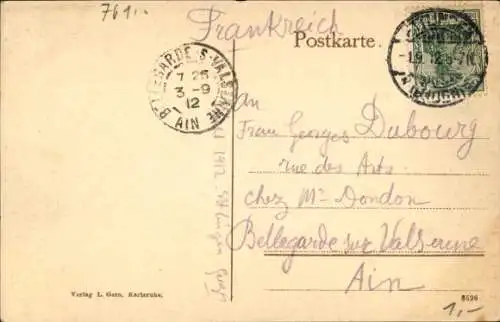 761.-
Frankreich
Postkarte.
BELLEGARDE S. VALSERINE
7 25
3 -9
12
AIN
1.9.12.5-7N
an
Frau Georges Dubourg
rue des Arts
chez Mr Dondon
Bellegarde sur Valserine
Ain
1912
Verlag L. Gern, Karlsruhe.
8526
1,-